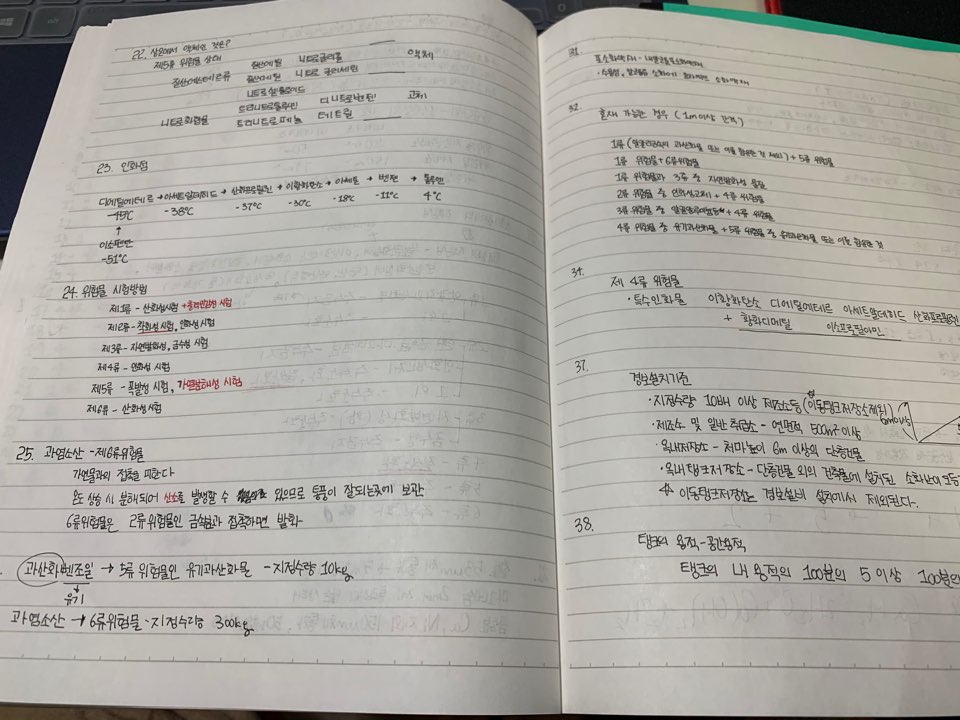 22. 상온에서 액체인 것은?
제5류 위험물 상태
질산에스테르류 질산메틸 니트로글리콜 액체
질산에틸 니트로글리세린
니트로셀룰로이드
니트로화합물 트리니트로톨루엔 디니트로벤젠 고체
트리니트로페놀 테트릴
23. 인화점
디에틸에테르 → 아세트알데히드 → 산화프로필렌 → 이황화탄소 → 아세톤 → 벤젠 → 톨루엔
-45℃ -38℃ -37℃ -30℃ -18℃ -11℃ 4℃
↑
이소펜탄
-51℃
24. 위험물 시험방법
제1류 - 산화성시험 + 충격민감성 시험
제2류 - 착화성 시험, 인화성 시험
제3류 - 자연발화성, 금수성 시험
제4류 - 인화성 시험
제5류 - 폭발성 시험, 가열분해성 시험
제6류 - 산화성시험
25. 과염소산 - 제6류위험물
가연물과의 접촉을 피한다
온도 상승 시 분해되어 산소를 발생할 수 있으므로 통풍이 잘되는곳에 보관
6류위험물은 2류위험물인 금속분과 접촉하면 발화
과산화벤조일 → 5류 위험물인 유기과산화물 - 지정수량 10kg
유기
과염소산 → 6류위험물 - 지정수량 300kg
31.
포소화약제 -
· 수용성, 알코올류 소화에 효과적인 소화약제
32.
혼재 가능한 경우 (1m이상 간격)
1류 (알칼리금속의 과산화물 또는 이를 함유한 것 제외) + 5류 위험물
1류 위험물 + 6류위험물
1류 위험물과 3류 중 자연발화성 물질
2류 위험물 중 인화성고체 + 4류 위험물
3류 위험물 중 알킬알루미늄등 + 4류 위험물
4류 위험물 중 유기과산화물 + 5류 위험물 중 유기과산화물 또는 이를 함유한 것
34.
제 4류 위험물
· 특수인화물 이황화탄소 디에틸에테르 아세트알데히드 산화프로필렌
+ 황화디메틸 이소프로필아민
37.
경보설치기준
· 지정수량 10배 이상 제조소등 (이동탱크저장소제외)
· 제조소 및 일반 취급소 - 연면적 500㎡ 이상
· 옥내저장소 - 처마높이 6m 이상의 단층건물
· 옥내탱크저장소 - 단층건물 외의 건축물에 설치된 소화난이도등
☆ 이동탱크저장소는 경보설비 설치에서 제외된다.
38.
탱크의 용적 - 공간용적
탱크의 내용적의 100분의 5 이상 100분의